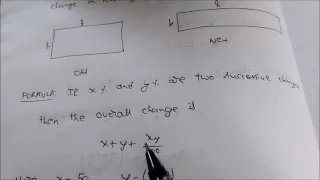 change in
l
b
Old
l
b
New
FORMULA: If x% and y% are two successive change
then the overall change is
x+y+ xy
x = 50